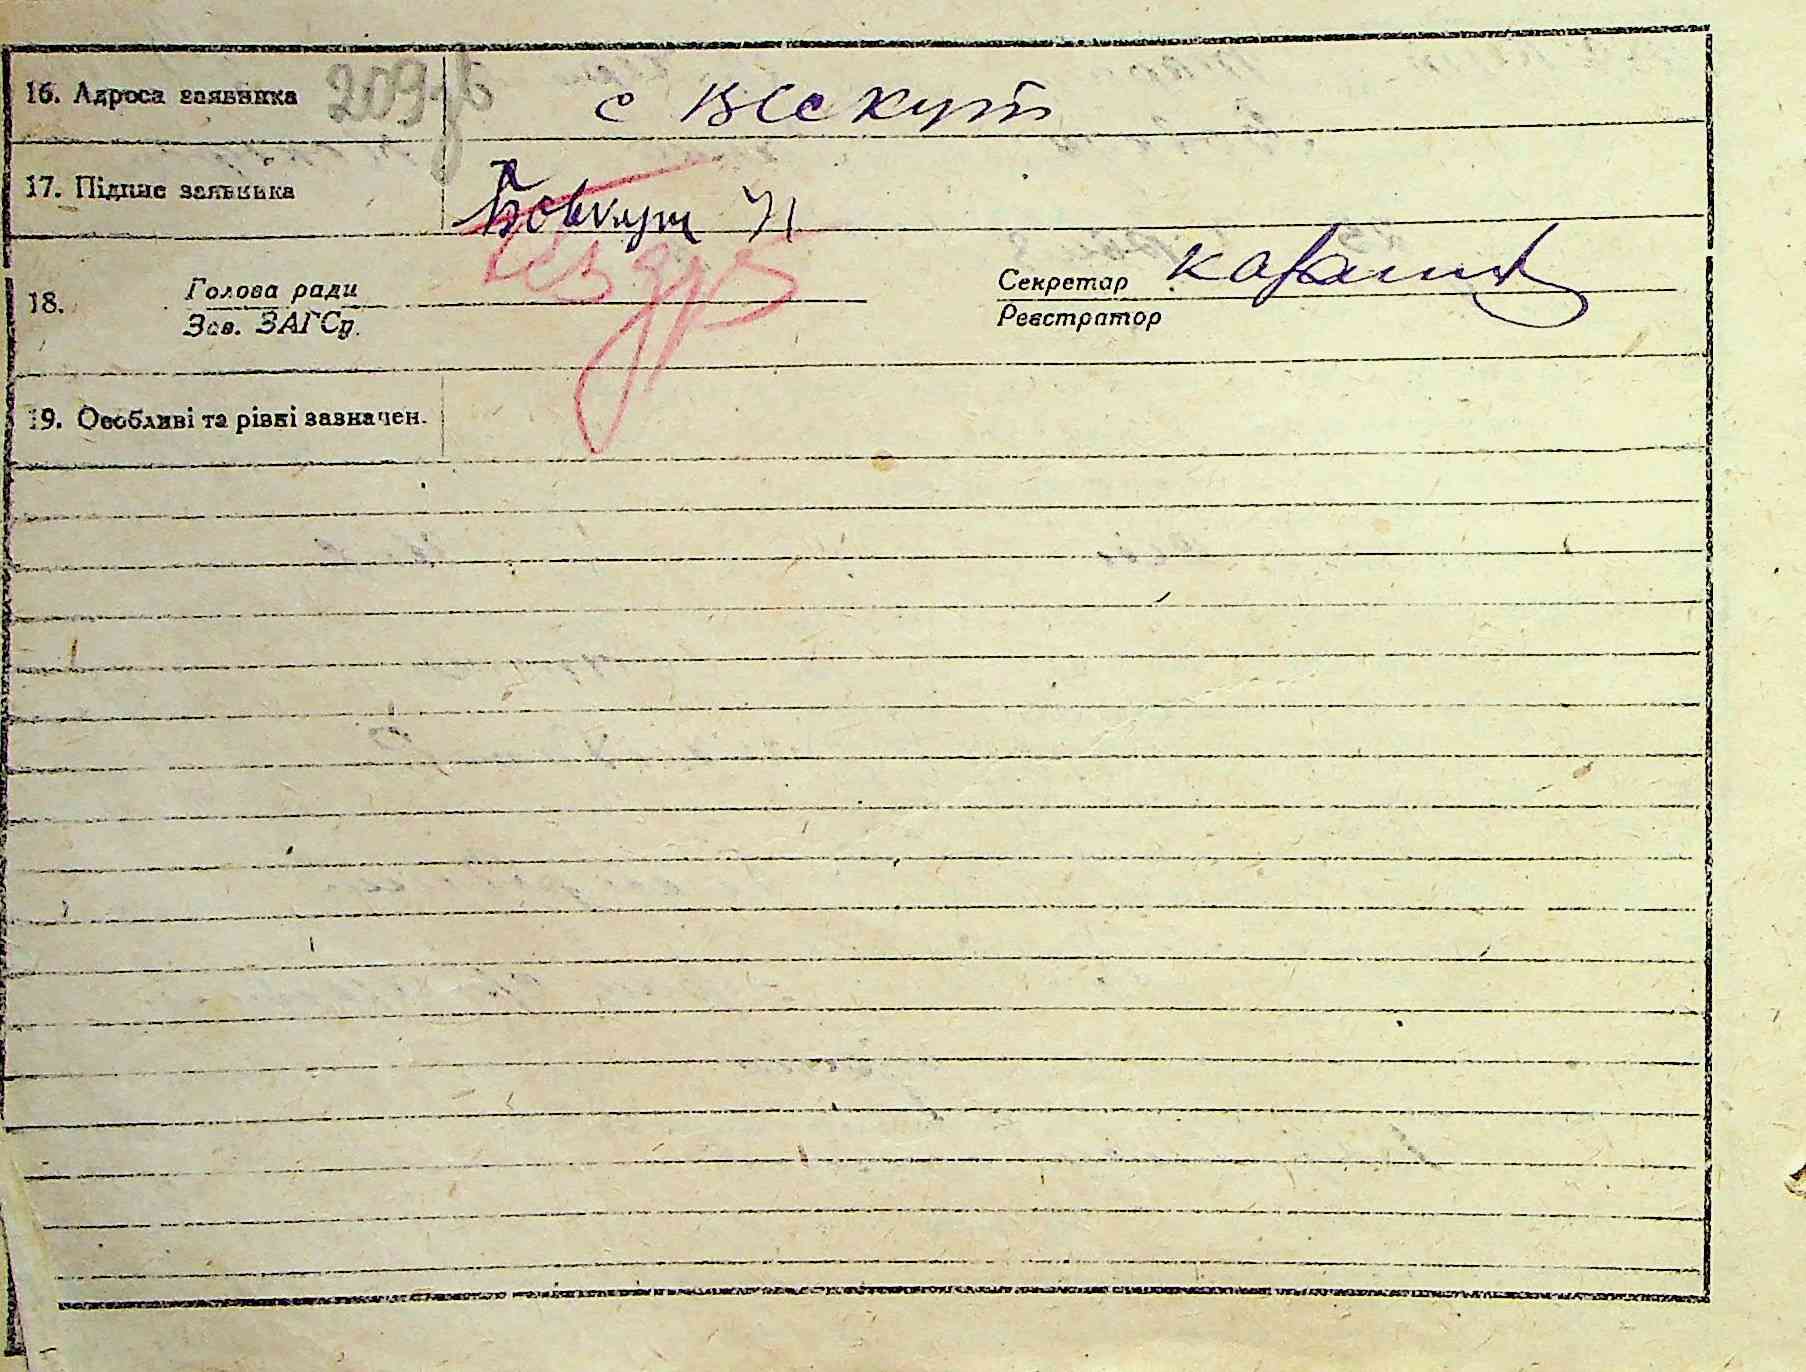 16. Адреса заявника 209 с Вескут
17. Підпис заявника Бовкун Я
18. Голова ради Секретар
Зав. ЗАГСу. Реєстратор
19. Особливі та різні зазначен.